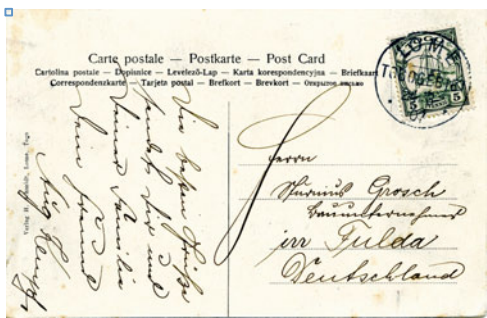 Carte postale — Postkarte — Post Card
Cartolina postale — Dopisnice — Levelező-Lap — Karta korespondencyjna — Briefkaart
Correspondenzkarte — Tarjeta postal — Brefkort — Brevkort — Открытое письмо
LOME
TOGOGEBIET
07
5 5
Die besten Grüße
sendet Dir und
Deiner Familie
Dein Freund
Verlag Lome, Togo
Herrn
Grosch
Bauunternehmer
in Fulda
Deutschland